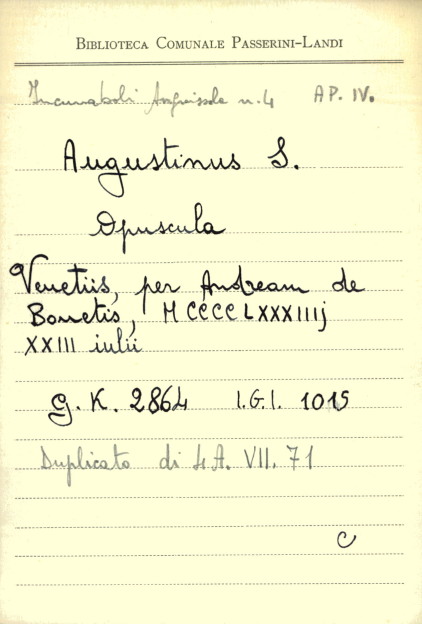 BIBLIOTECA COMUNALE PASSERINI-LANDI
Incunaboli Anguissola n. 4 AP. IV.
Augustinus S.
Opuscula
Venetiis, per Andream de
Bonetis, MCCCCLXXXIIIj
XXIII iulii
G. K. 2864 I.G.I. 1015
Duplicato di 4A. VII. 71
C